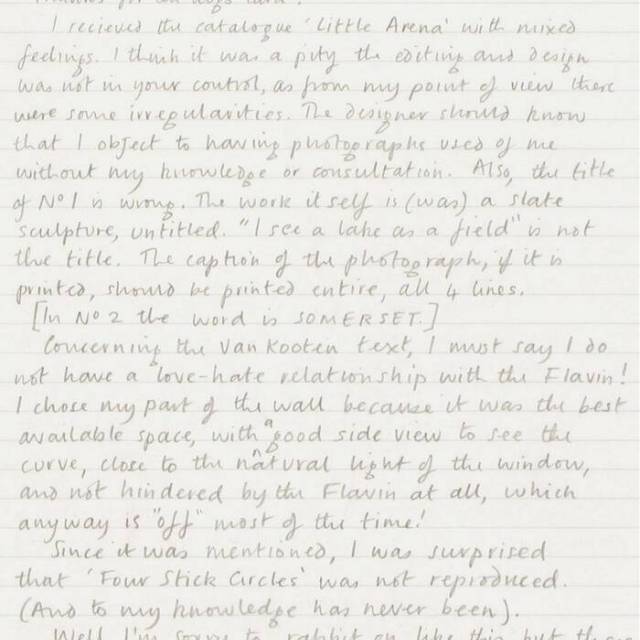 I recieved the catalogue 'Little Arena' with mixed
feelings. I think it was a pity the editing and design
was not in your control, as from my point of view there
were some irregularities. The designer should know
that I object to having photographs used of me
without my knowledge or consultation. Also, the title
of Nº 1 is wrong. The work itself is (was) a slate
sculpture, untitled. "I see a lake as a field" is not
the title. The caption of the photograph, if it is
printed, should be printed entire, all 4 lines.
[In Nº 2 the word is SOMERSET.]
Concerning the Van Kooten text, I must say I do
not have a love-hate relationship with the Flavin!
I chose my part of the wall because it was the best
available space, with a good side view to see the
curve, close to the natural light of the window,
and not hindered by the Flavin at all, which
anyway is "off" most of the time!
Since it was mentioned, I was surprised
that 'Four Stick Circles' was not reproduced.
(And to my knowledge has never been).
Well I'm sorry to rabbit on like this, but